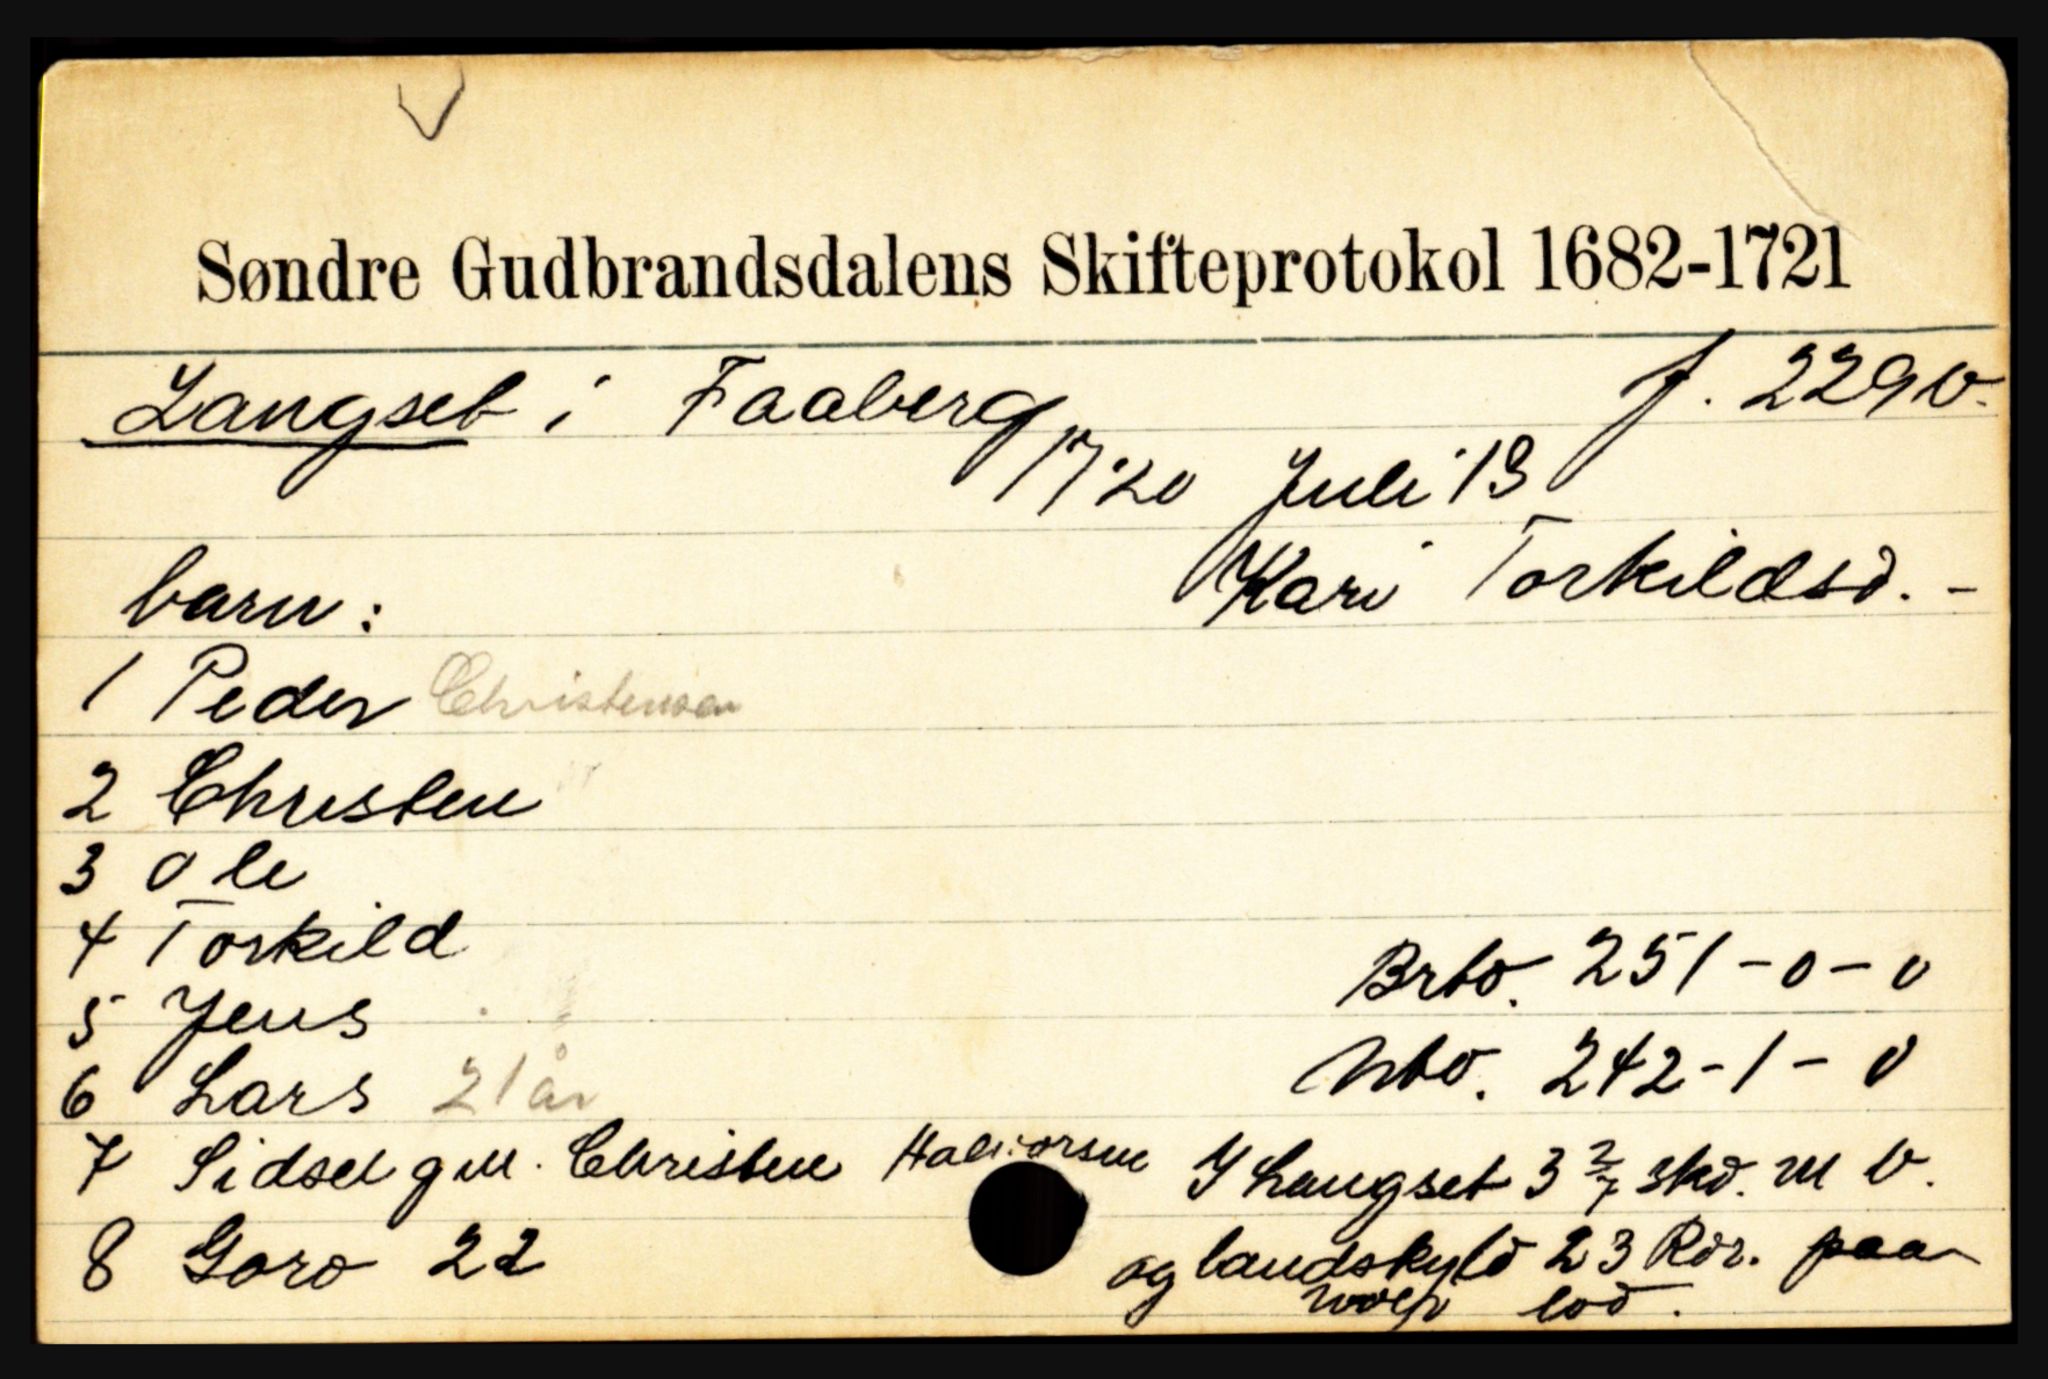 Søndre Gudbrandsdalens Skifteprotokol 1682-1721
Langset i Faaberg f. 229b.
1720 Juli 13
Kari Torkildsd. -
barn:
1 Peder Christensen
2 Christen
3 Ole
4 Torkild
5 Jens
6 Lars 21 år
7 Sidsel gm. Christen Halvorsen
8 Goro 22
Brbo. 251-0-0
Nbo. 242-1-0
I Langset 3 2/7 skd. m b.
og landskyld 23 Rdr. paa
lod.